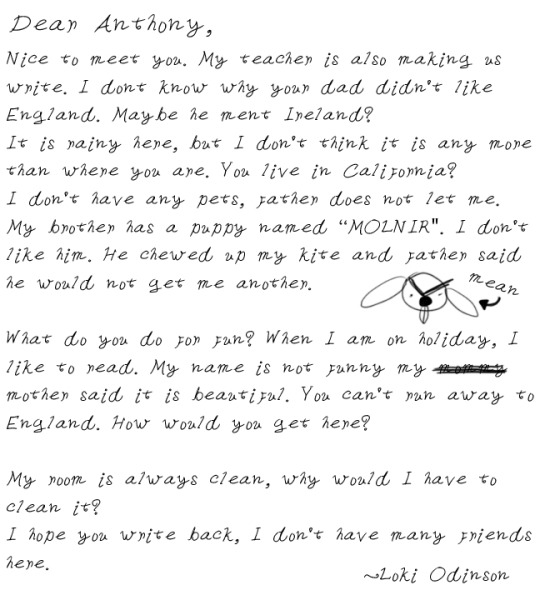 Dear Anthony,
Nice to meet you. My teacher is also making us
write. I dont know why your dad didn't like
England. Maybe he ment Ireland?
It is rainy here, but I don't think it is any more
than where you are. You live in California?
I don't have any pets, father does not let me.
My brother has a puppy named “MOLNIR". I don't
like him. He chewed up my kite and father said
he would not get me another.
mean
What do you do for fun? When I am on holiday, I
like to read. My name is not funny my mommy
mother said it is beautiful. You can't run away to
England. How would you get here?
My room is always clean, why would I have to
clean it?
I hope you write back, I don't have many friends
here.
~Loki Odinson